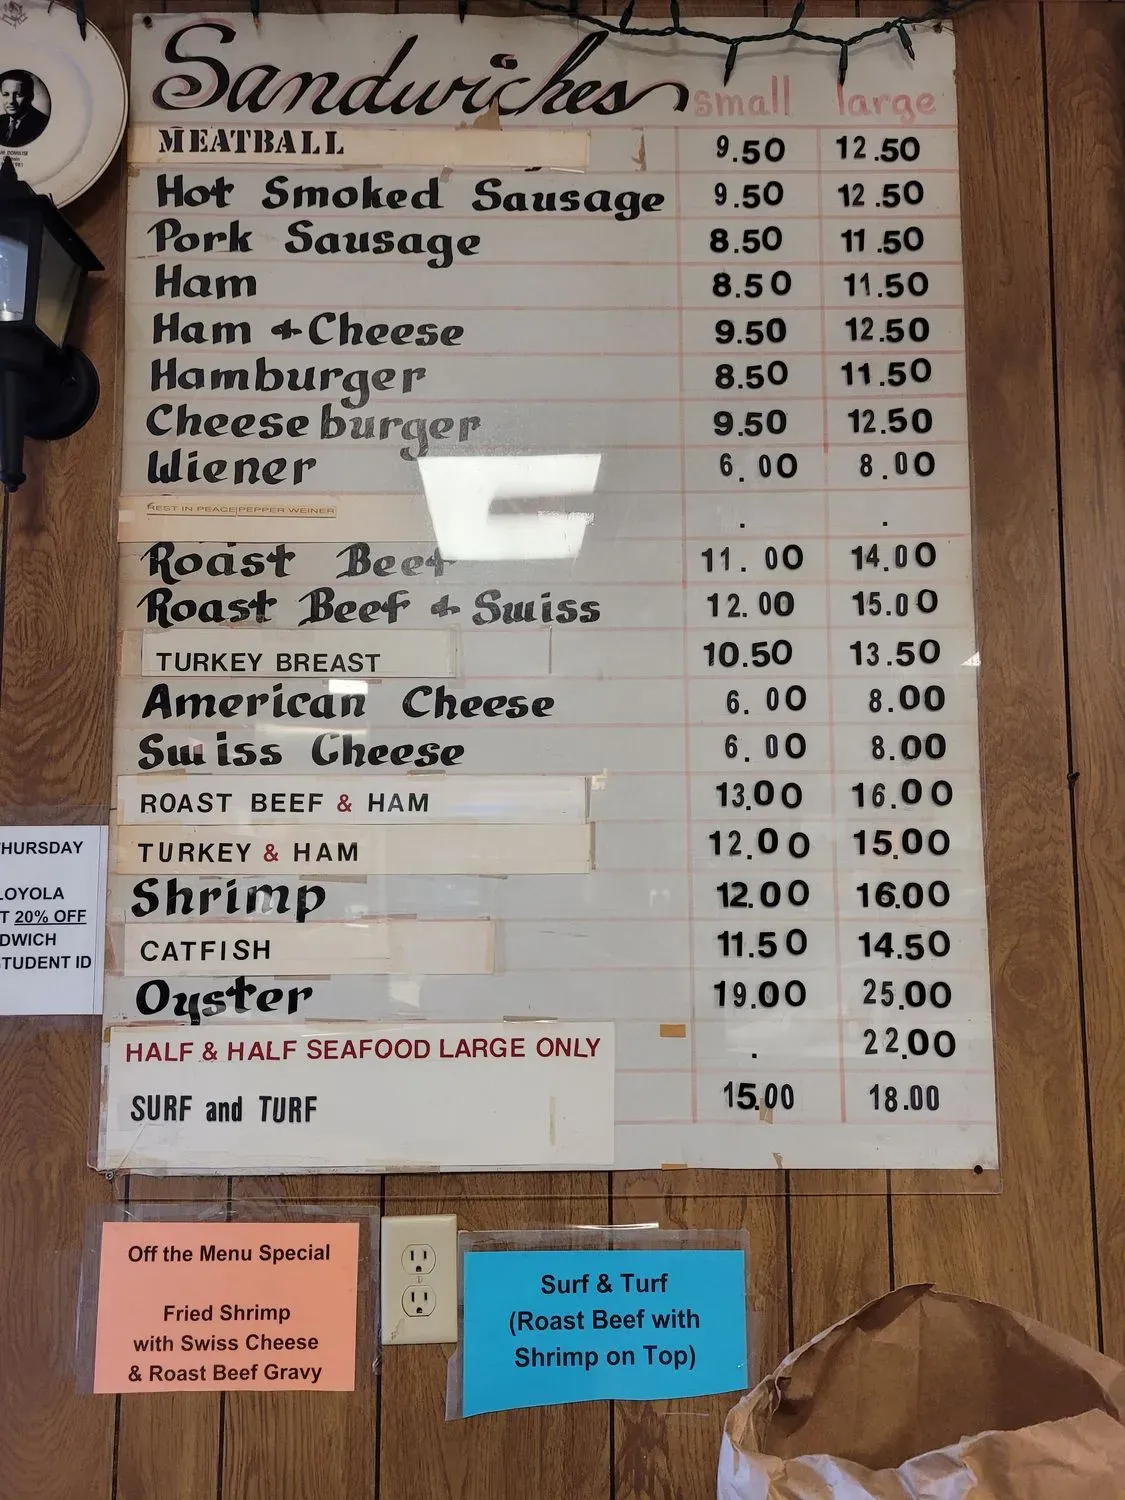 Sandwiches small large
MEATBALL 9.50 12.50
Hot Smoked Sausage 9.50 12.50
Pork Sausage 8.50 11.50
Ham 8.50 11.50
Ham & Cheese 9.50 12.50
Hamburger 8.50 11.50
Cheeseburger 9.50 12.50
Wiener 6.00 8.00
REST IN PEACE PEPPER WEINER . .
Roast Beef 11.00 14.00
Roast Beef & Swiss 12.00 15.00
TURKEY BREAST 10.50 13.50
American Cheese 6.00 8.00
Swiss Cheese 6.00 8.00
ROAST BEEF & HAM 13.00 16.00
TURKEY & HAM 12.00 15.00
Shrimp 12.00 16.00
CATFISH 11.50 14.50
Oyster 19.00 25.00
HALF & HALF SEAFOOD LARGE ONLY . 22.00
SURF and TURF 15.00 18.00
HURSDAY
LOYOLA
T 20% OFF
DWICH
TUDENT ID
Off the Menu Special
Fried Shrimp
with Swiss Cheese
& Roast Beef Gravy
Surf & Turf
(Roast Beef with
Shrimp on Top)